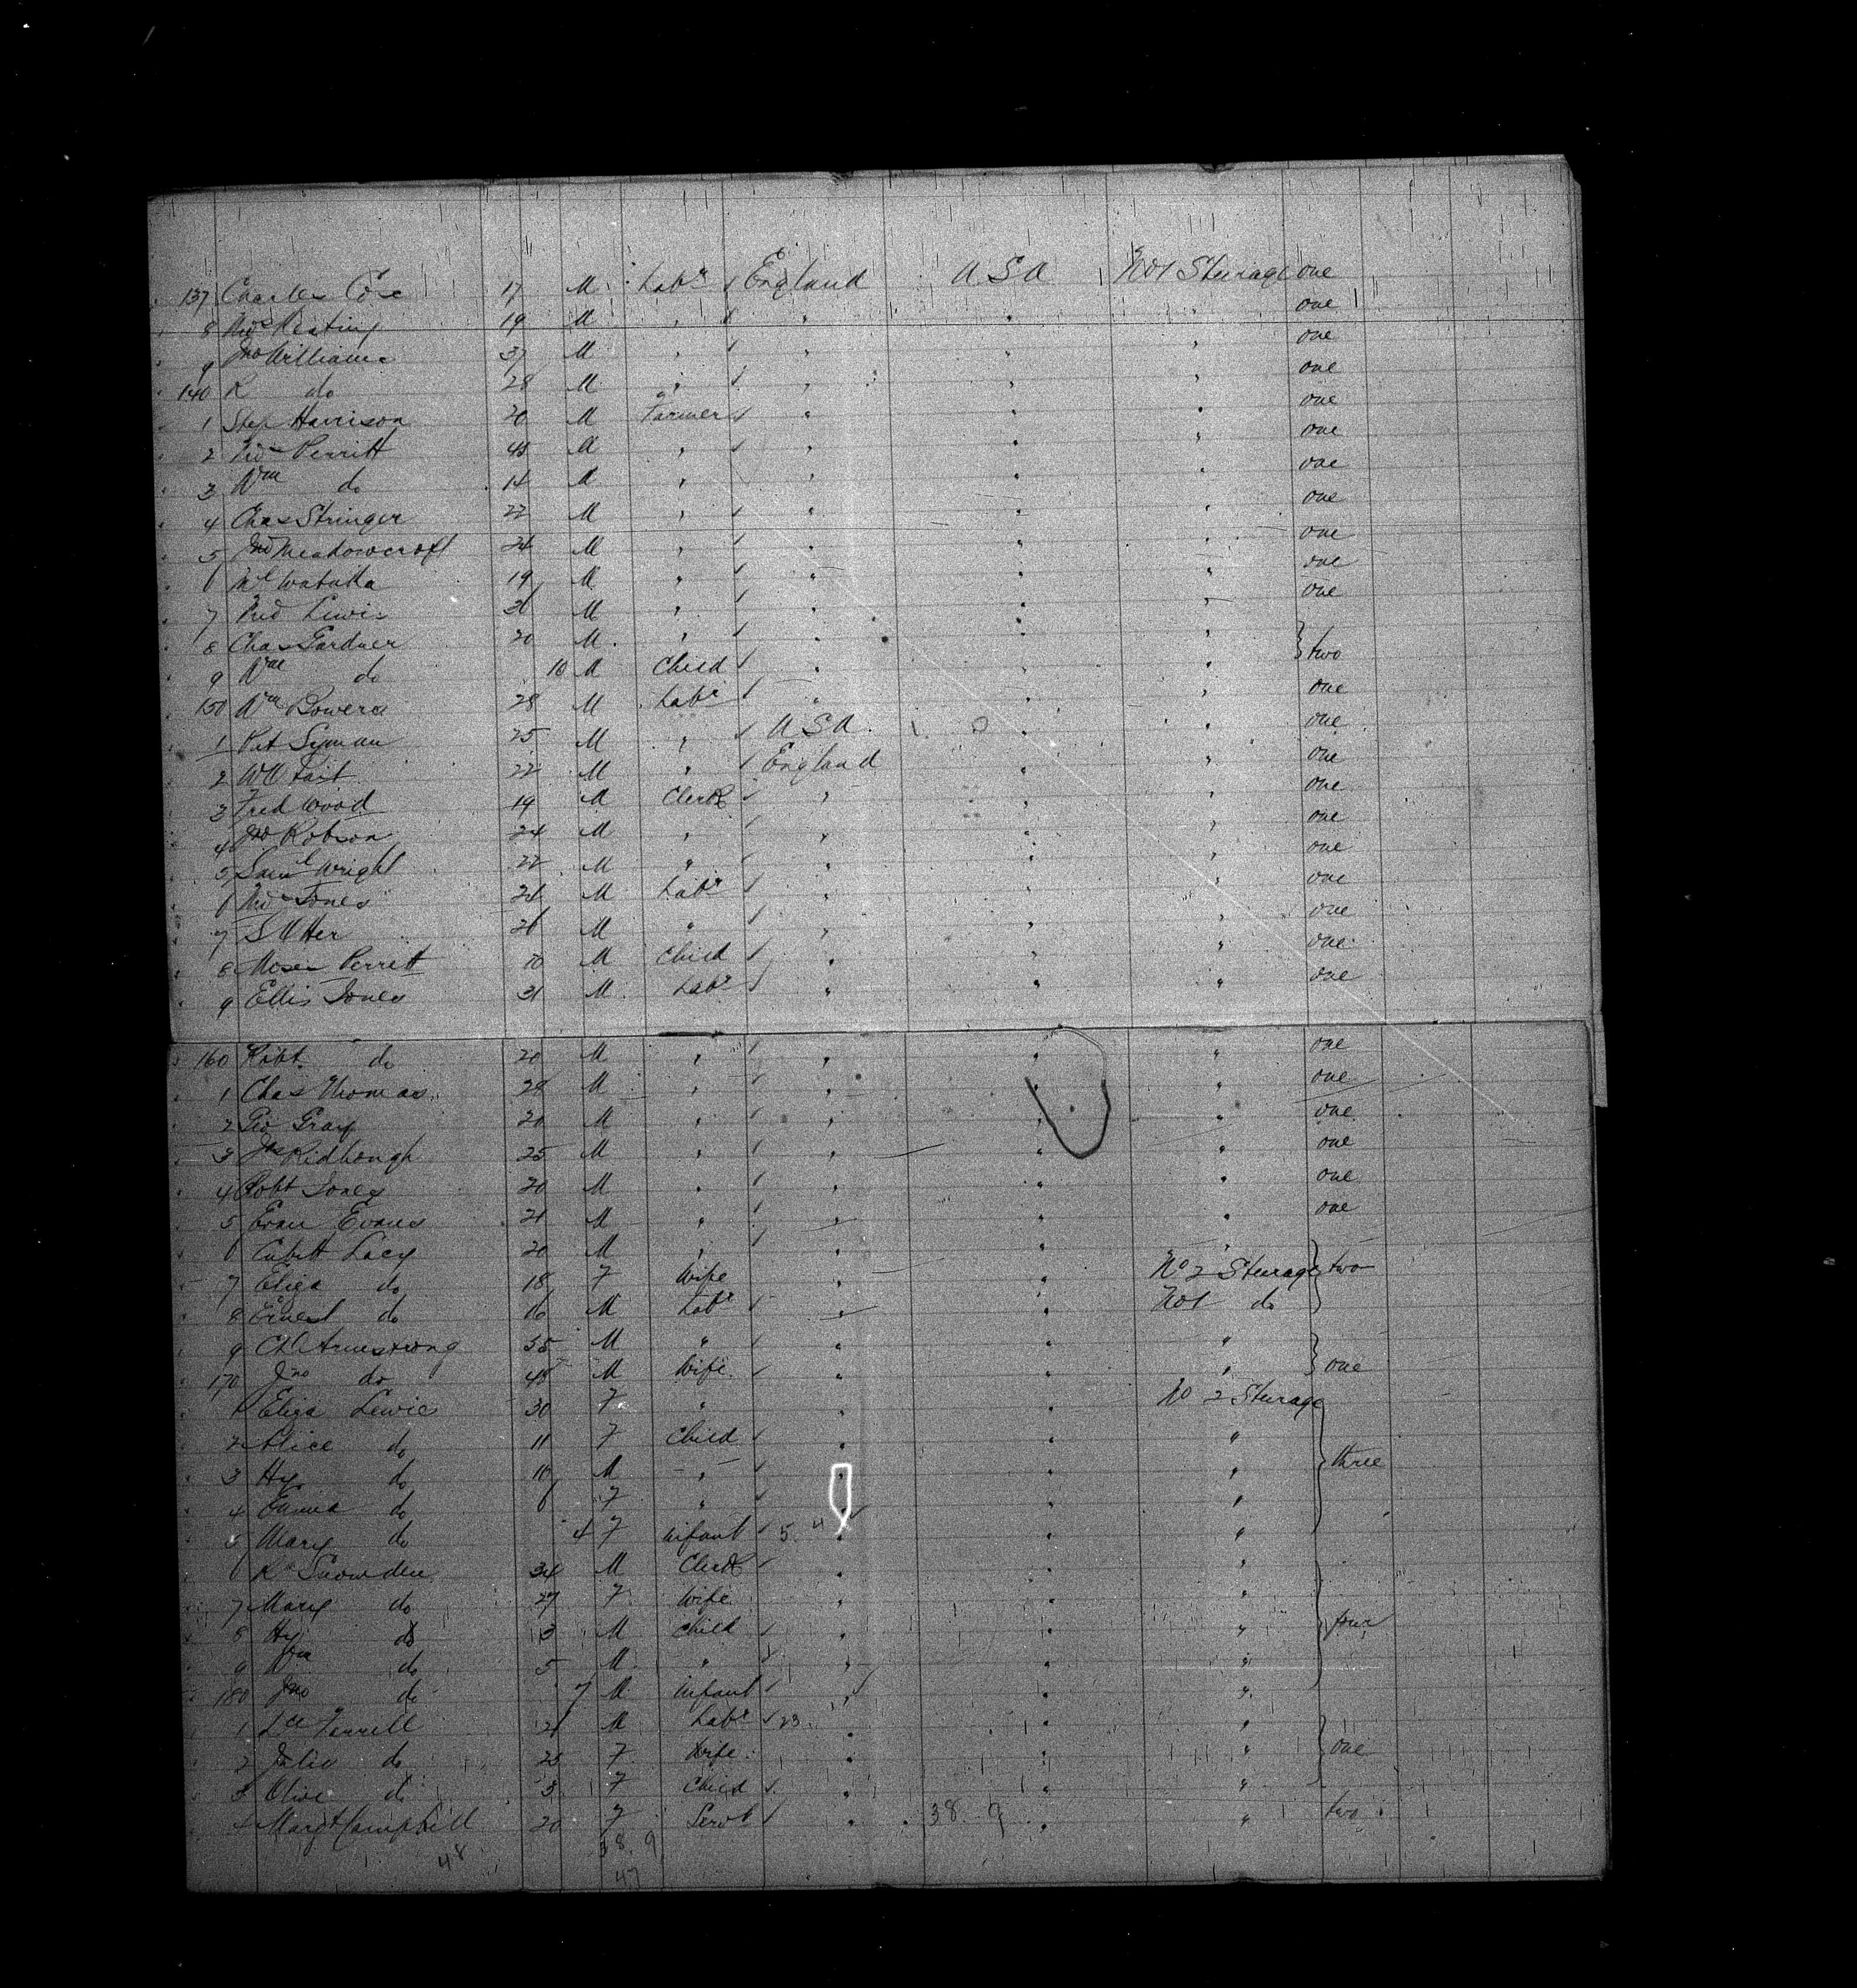 137 Charles Cose 17 M Labr England U S A No 1 Steerage one
8 Keating 19 M " " " " one
9 Jno Williams 37 M " " " " one
140 R do 28 M " " " " one
1 Step Harrison 20 M Farmer " " " one
2 Perritt 45 M " " " " one
3 Wm do 14 M " " " " one
4 Chas Stringer 22 M " " " " one
5 Jno Meadowcroft 24 M " " " " one
6 19 M " " " " one
7 Fred Lewis M " " " " one
8 Chas Gardner 20 M " " " " two
9 Wm do 10 M Child " " "
150 Wm Bowers 28 M Labr " " " one
1 Pat Lyman 25 M " U S A " " one
2 Tait 22 M " England " " one
3 Fred Wood 19 M Clerk " " " one
4 Jno Robson 24 M " " " " one
5 Saml Wright 22 M " " " " one
6 Jones M Labr " " " one
7 M " " " " one
8 Moses Perrett 10 M Child " " " one
9 Ellis Jones 31 M Labr " " " one
160 Robt do 20 M " " " " one
1 Chas Thomas 28 M " " " " one
2 Geo Gray 20 M " " " " one
3 Jas 25 M " " " " one
4 Robt Jones 20 M " " " " one
5 Evan Evans 21 M " " " " one
6 Lacy 20 M " " " " two
7 Eliza do 18 F Wife " " No 2 Steerage
8 Ernest do 16 M Labr " " No 1 do
9 Armstrong 35 M " " " " one
170 Jno do 48 M Wife " " "
1 Eliza Lewis 30 F " " " No 2 Steerage three
2 Alice do 11 F Child " " "
3 Hy do 10 M " " " "
4 Emma do 6 F " " " "
5 Mary do 4 F Infant 5. 4 " " "
6 Snowden 34 M Clerk " " " four
7 Mary do 27 F Wife " " "
8 Hy do 3 M Child " " "
9 Wm do 5 M " " " "
180 Jno do 7 M Infant " " "
1 21 M Labr 23 " " " one
2 Julia do 25 F Wife " " "
3 Olive do 3 F Child " " "
4 Margt Campbell 20 F Servt " 38. 9 " " two
48 38. 9
47